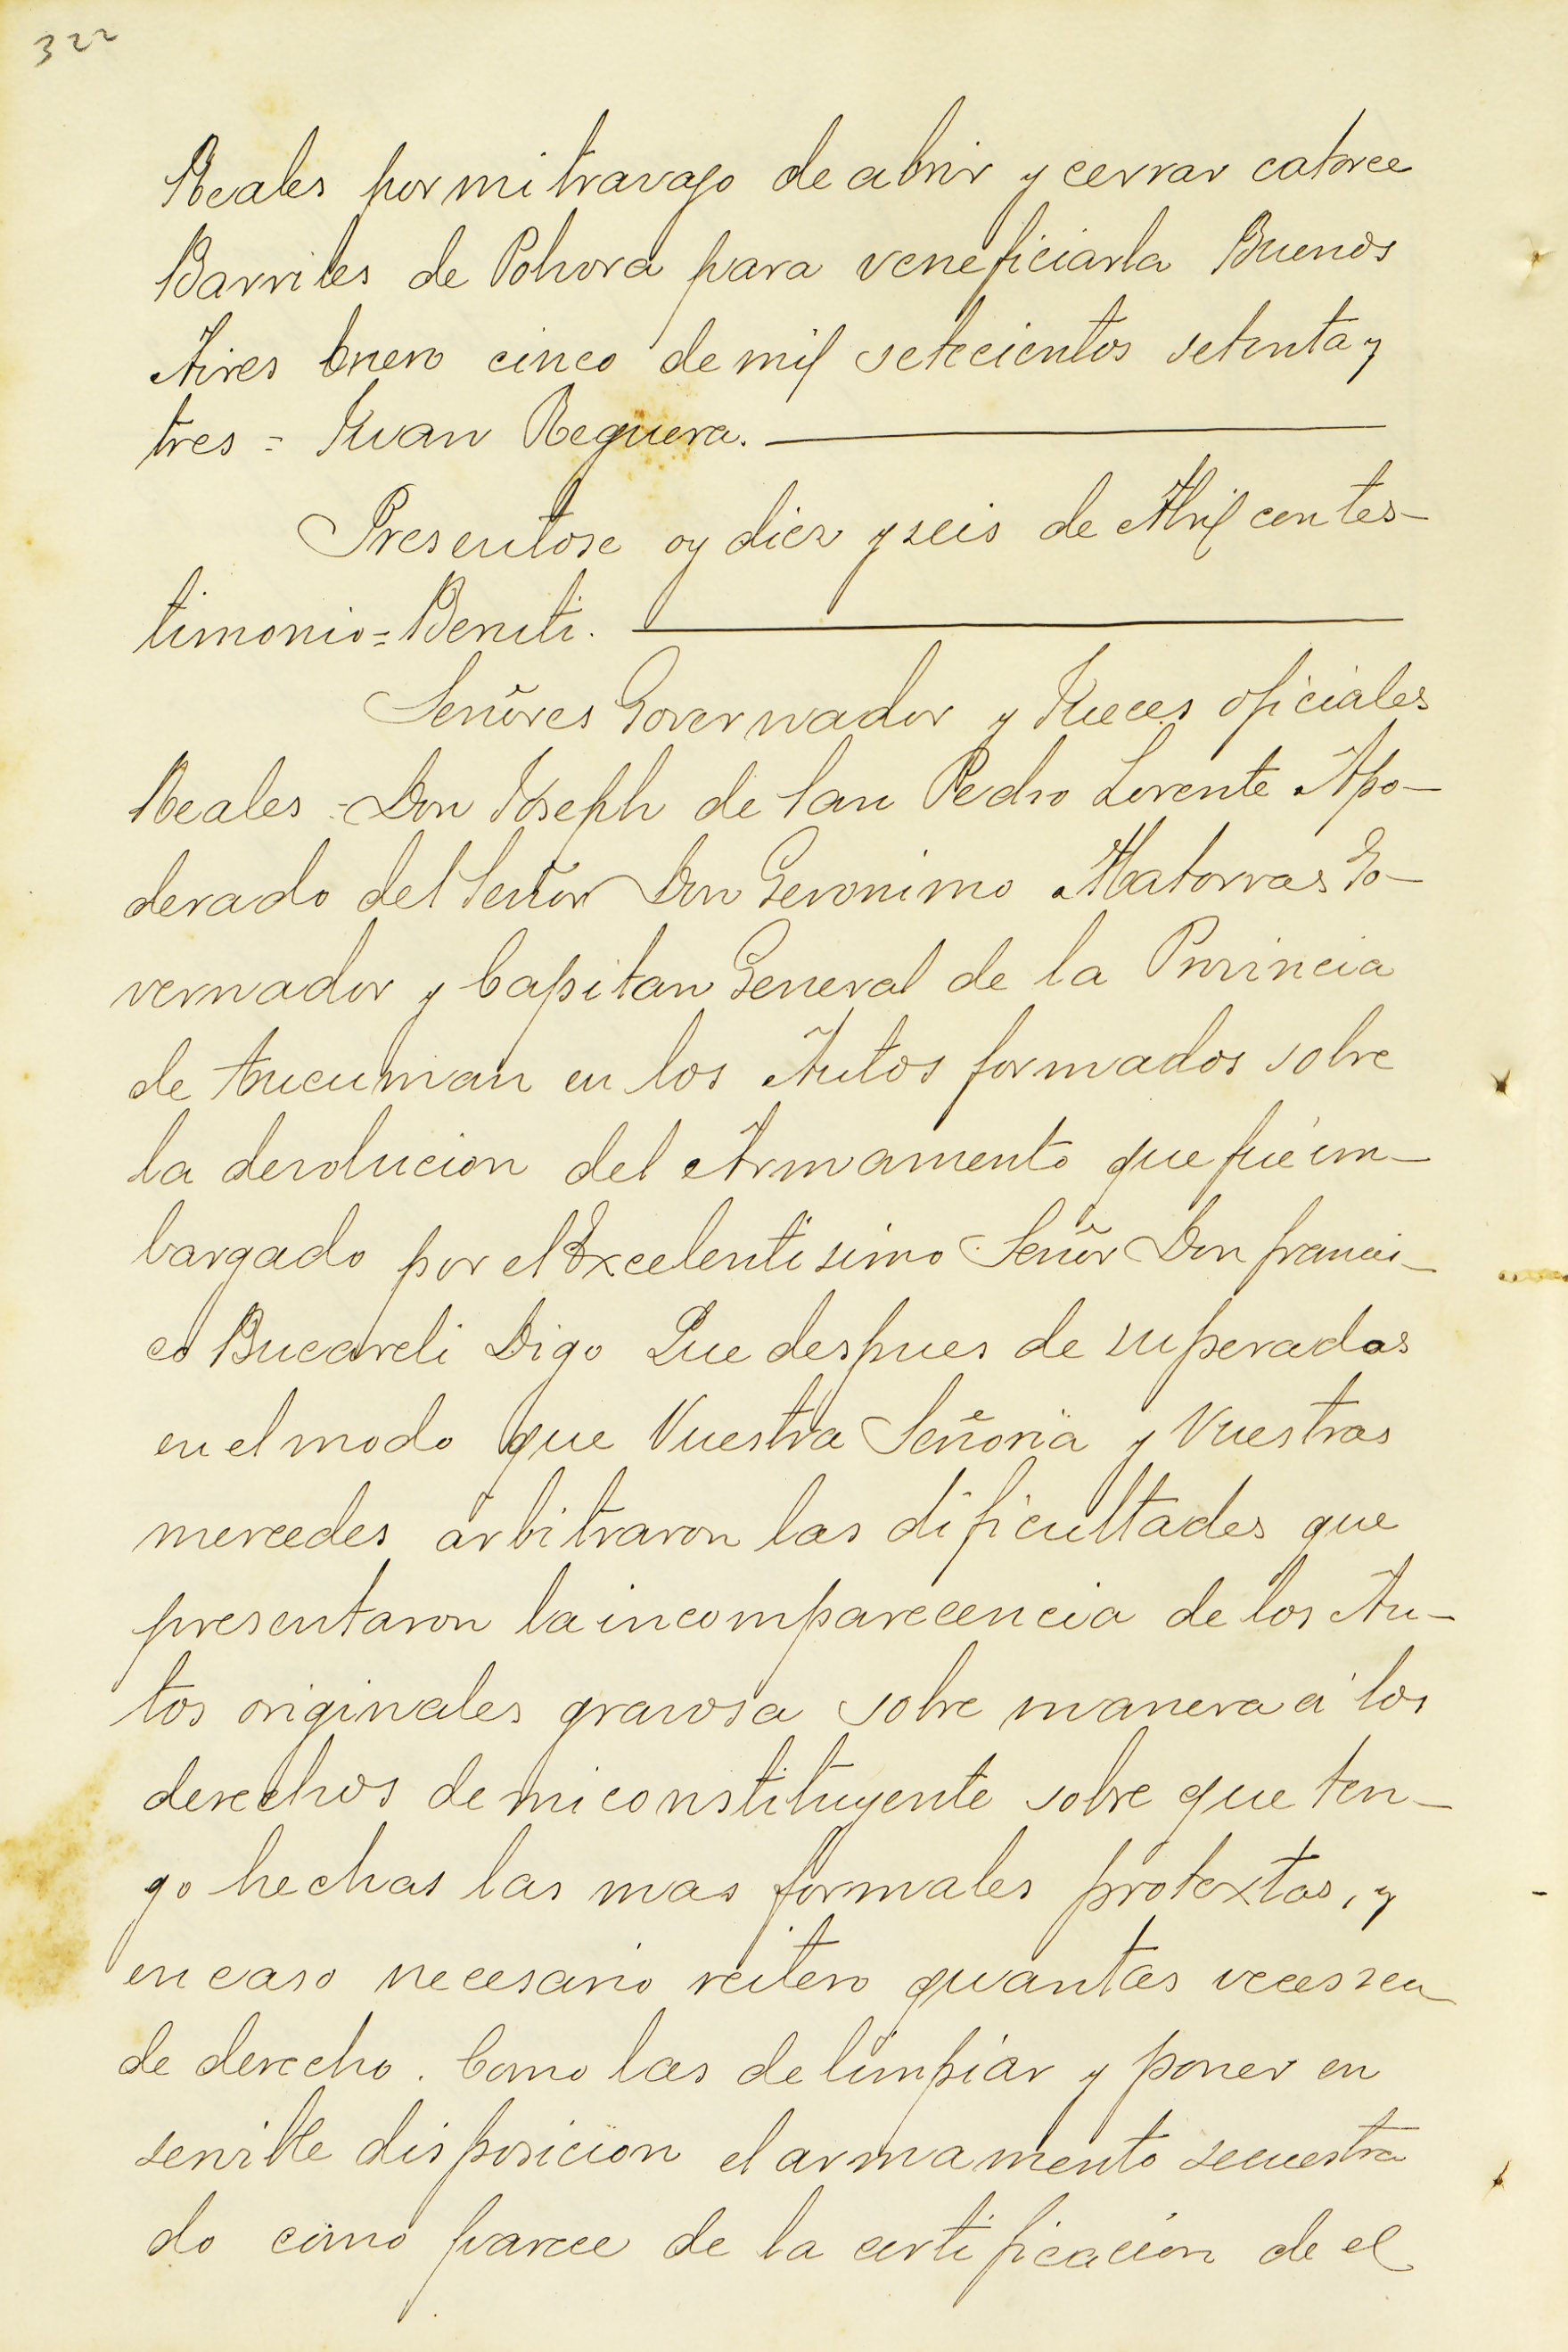 322
Reales por mi travajo de abrir y cerrar catorce
Barriles de Polvora para veneficiarla Buenos
Aires Enero cinco de mil setecientos setenta y
tres = Juan Reguera.
Presentose oy diez y seis de Abril con tes-
timonio = Beniti.
Señores Governador y Jueces oficiales
Reales - Don Joseph de San Pedro Lorente Apo-
derado del Señor Don Geronimo Matorras Go-
vernador y Capitan General de la Provincia
de Tucuman en los Autos formados sobre
la devolucion del Armamento que fué em-
bargado por el Excelentisimo Señor Don francis-
co Bucareli Digo Que despues de superadas
en el modo que Vuestra Señoria y Vuestras
mercedes arbitraron las dificultades que
presentaron la incomparecencia de los Au-
tos originales gravosa sobre manera a los
derechos de mi constituyente sobre que ten-
go hechas las mas formales protextas, y
en caso necesario reitero quantas veces sea
de derecho. Como las de limpiar y poner en
servible disposicion el armamento secuestra
do como parece de la certificacion de el